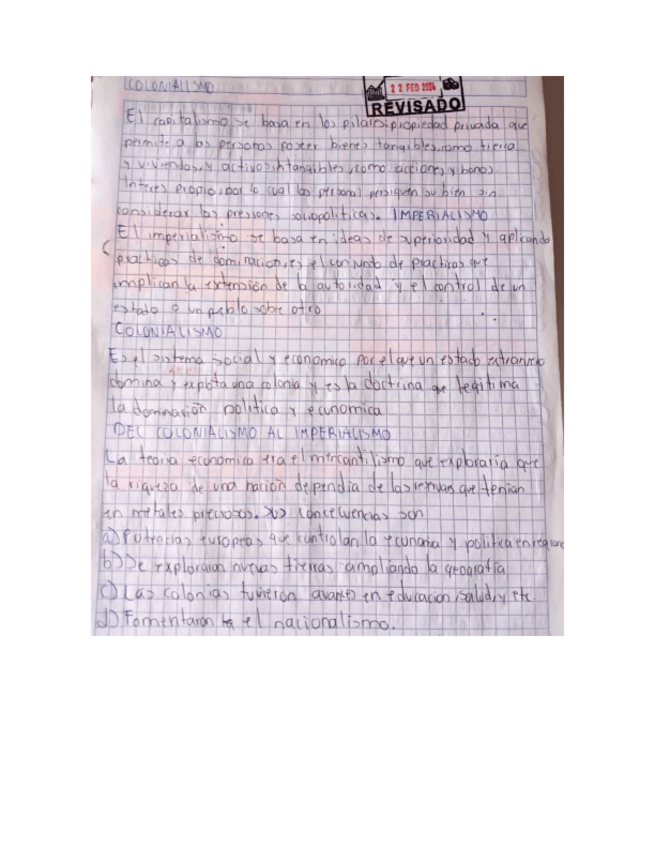 COLONIALISMO
22 FEB 2024
REVISADO
El capitalismo se basa en los pilares: propiedad privada que
permite a las personas poseer bienes tangibles, como tierra
y viviendas, y activos intangibles, como acciones y bonos
Interes propio, por lo cual las personas persiguen su bien sin
considerar las presiones sociopoliticas. IMPERIALISMO
El imperialismo se basa en ideas de superioridad y aplicando
practicas de dominacion, es el conjunto de practicas que
implican la extensión de la autoridad y el control de un
estado o un pueblo sobre otro
COLONIALISMO
Es el sistema social y economico por el que un estado extranjero
domina y explota una colonia y es la doctrina que legitima
la dominación politica y economica
DEL COLONIALISMO AL IMPERIALISMO
La teoria economica era el mercantilismo que exploraria que
la riqueza de una nación dependia de las reservas que tenian
en metales preciosos. Sus concecuencias son
a) Potencias europeas que controlan la economia y politica en regiones
b) Se exploraron nuevas tierras ampliando la geografia
c) Las colonias tuvieron avances en educacion, salud, y etc.
d) Fomentaron el nacionalismo.